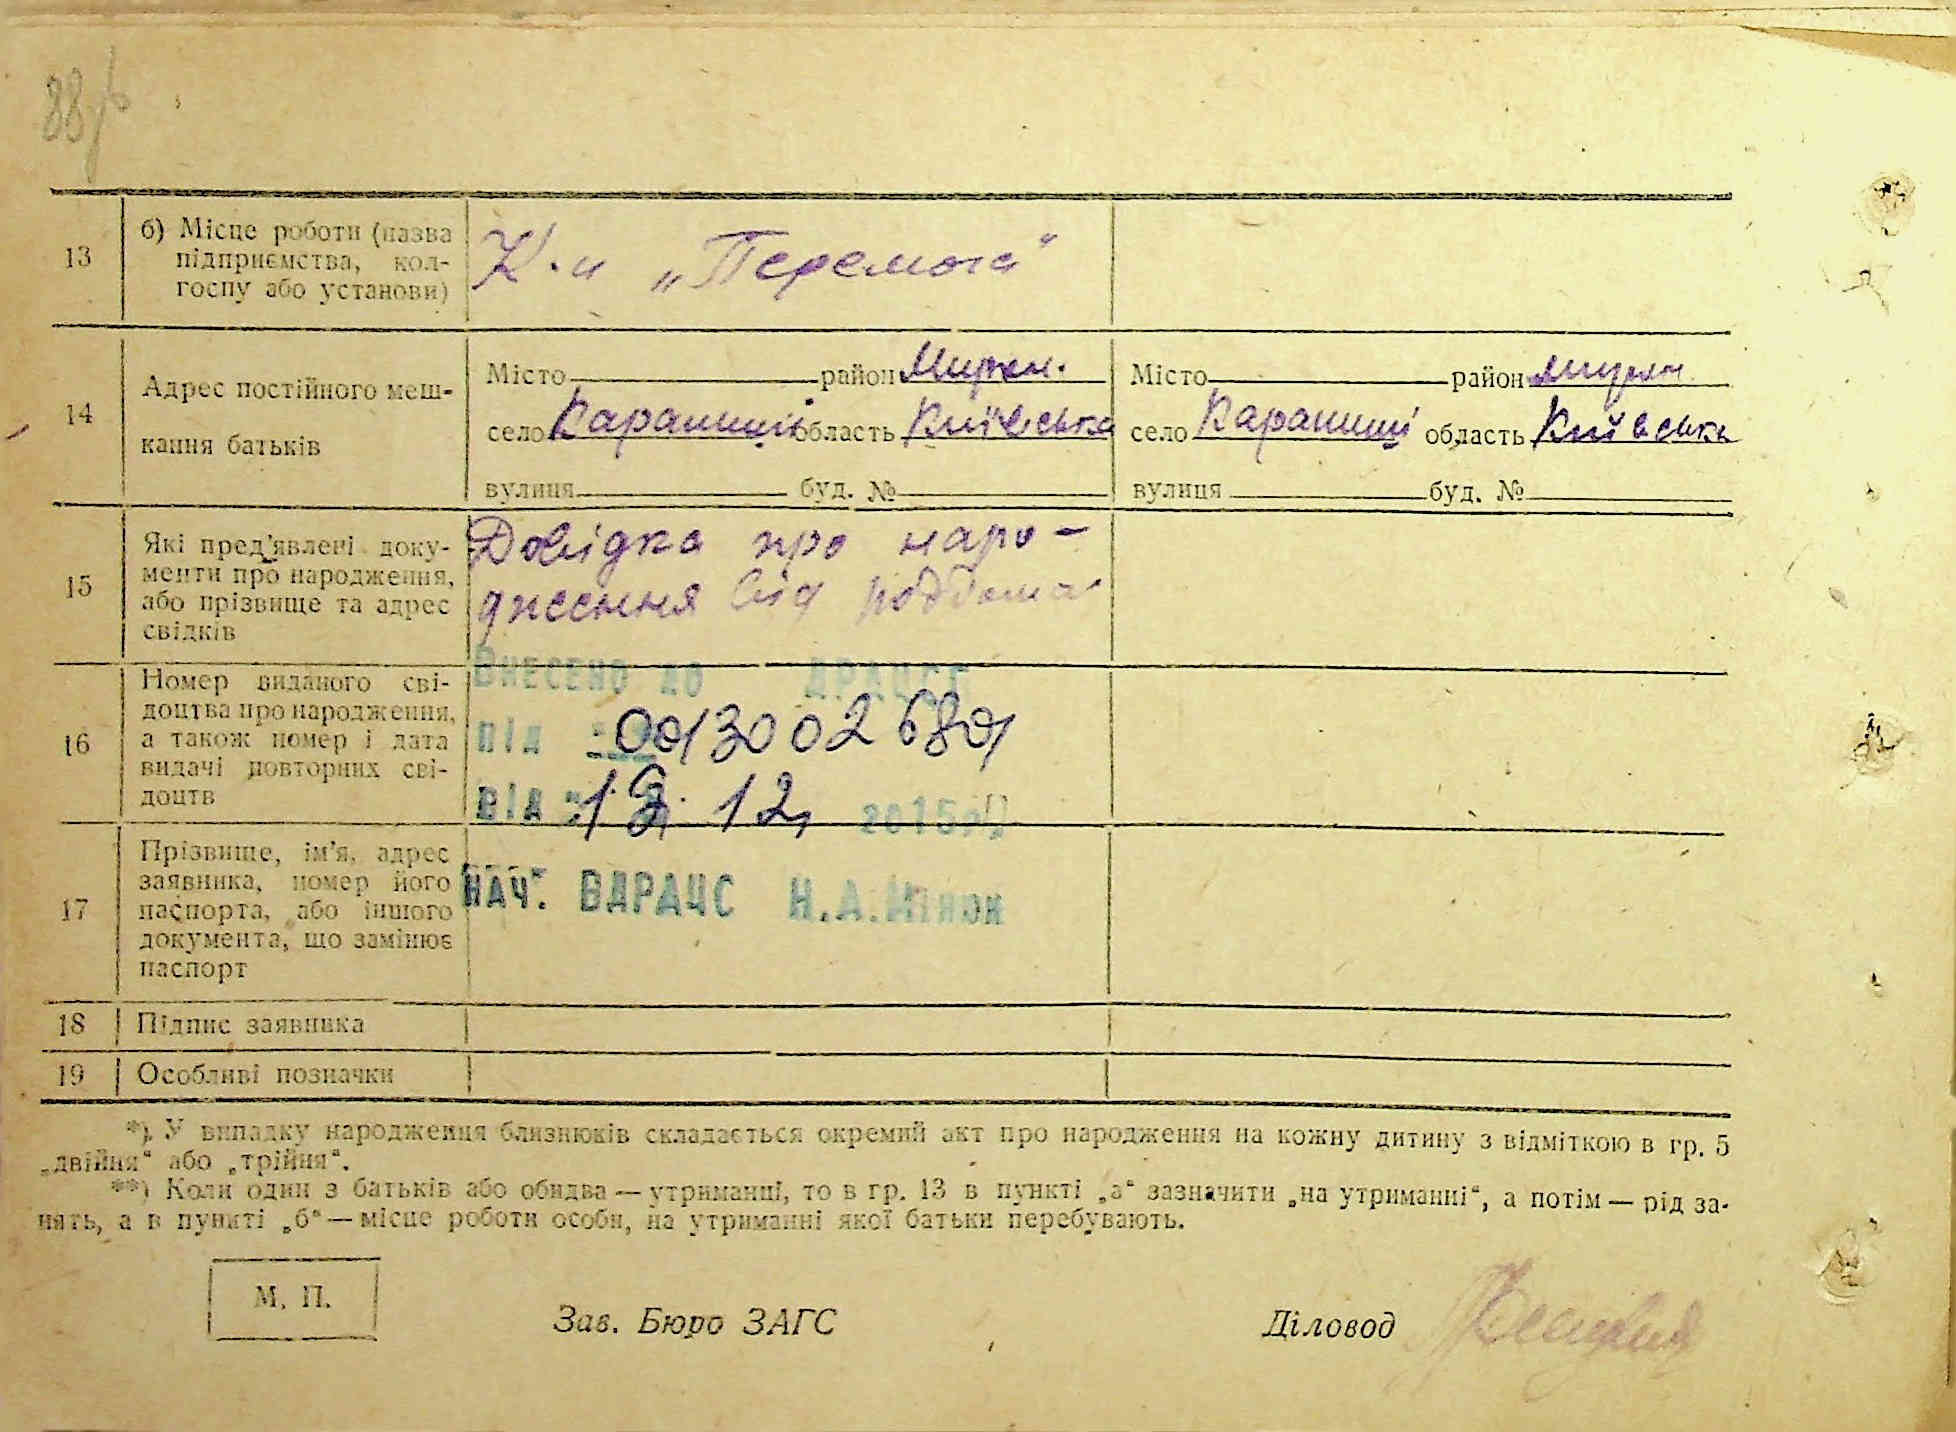 88
13
б) Місце роботи (назва
підприємства, кол-
госпу або установи)
К-п „Перемога“
14
Адрес постійного меш-
кання батьків
Місто район Мирон.
село Карапиші область Київська
вулиця буд. №
Місто район Мирон
село Карапиші область Київська
вулиця буд. №
15
Які пред'явлені доку-
менти про народження,
або прізвище та адрес
свідків
Довідка про наро-
дження від роддома
16
Номер виданого сві-
доцтва про народження,
а також номер і дата
видачі повторних сві-
доцтв
Внесено до ДРАЦСГ
під
від 12, 2015р.
17
Прізвище, ім'я, адрес
заявника, номер його
паспорта, або іншого
документа, що замінює
паспорт
НАЧ. ВДРАЦС Н.А.Мінюк
18 Підпис заявника
19 Особливі позначки
*) У випадку народження близнюків складається окремий акт про народження на кожну дитину з відміткою в гр. 5
„двійня“ або „трійня“.
**) Коли один з батьків або обидва — утриманці, то в гр. 13 в пункті „а“ зазначити „на утриманні“, а потім — рід за-
нять, а в пункті „б“ — місце роботи особи, на утриманні якої батьки перебувають.
М. П.
Зав. Бюро ЗАГС
Діловод